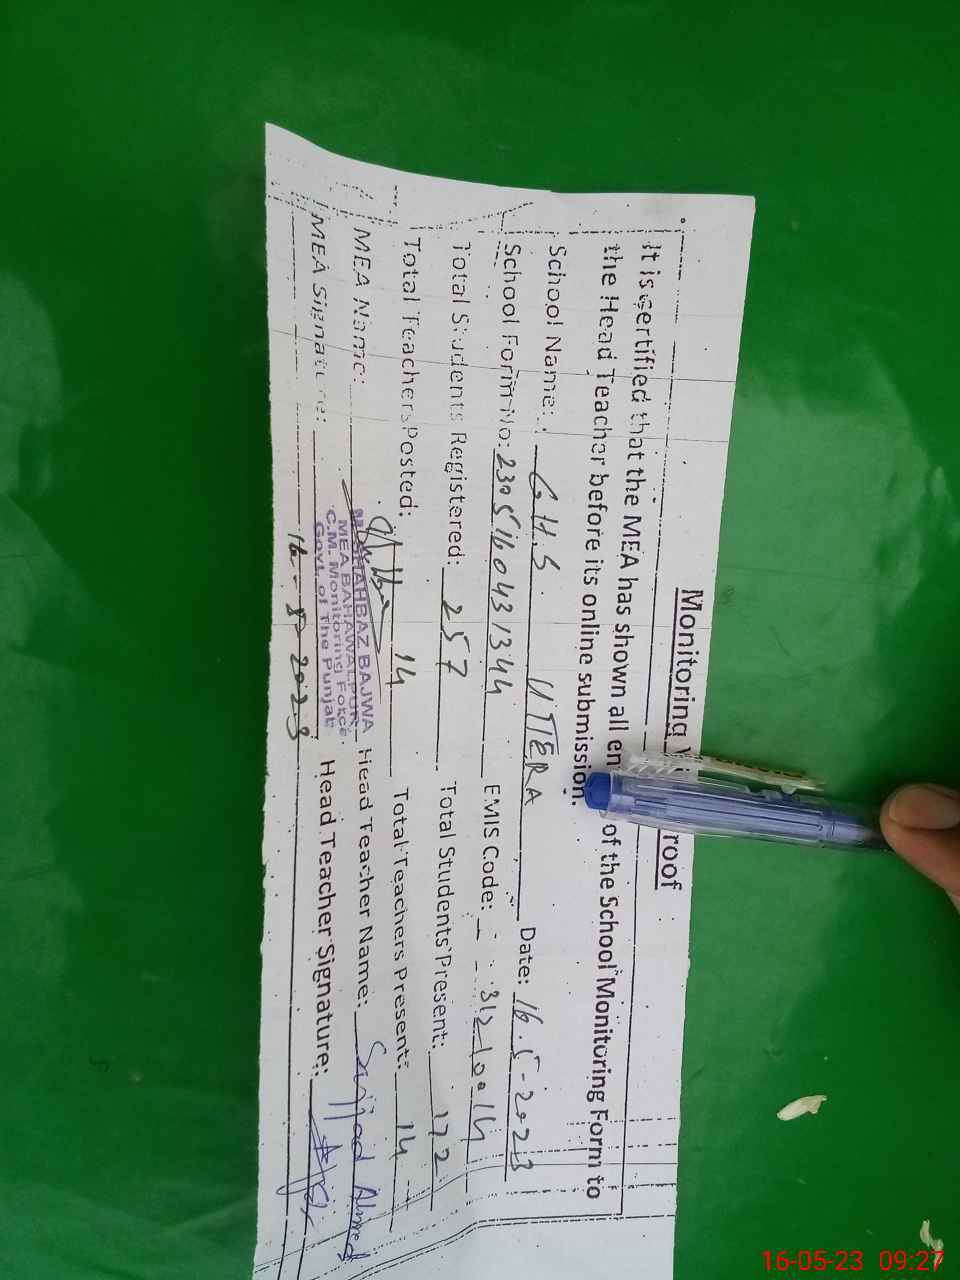 Monitoring roof
It is certified that the MEA has shown all en of the School Monitoring Form to
the Head Teacher before its online submission.
School Name: G.H.S. UTIERA Date: 16.5-2023
School Form No: 2305160431344 EMIS Code: 31210014
Total Students Registered: 257 Total Students Present: 172
Total Teachers Posted: 14 Total Teachers Present: 14
MEA Name: SHAHBAZ BAJWA Head Teacher Name: Sajjad Ahmed
MEA BAHAWALPUR
C.M. Monitoring Force
Govt. of The Punjab
MEA Signature: Head Teacher Signature:
16-5-2023
16-05-23 09:27